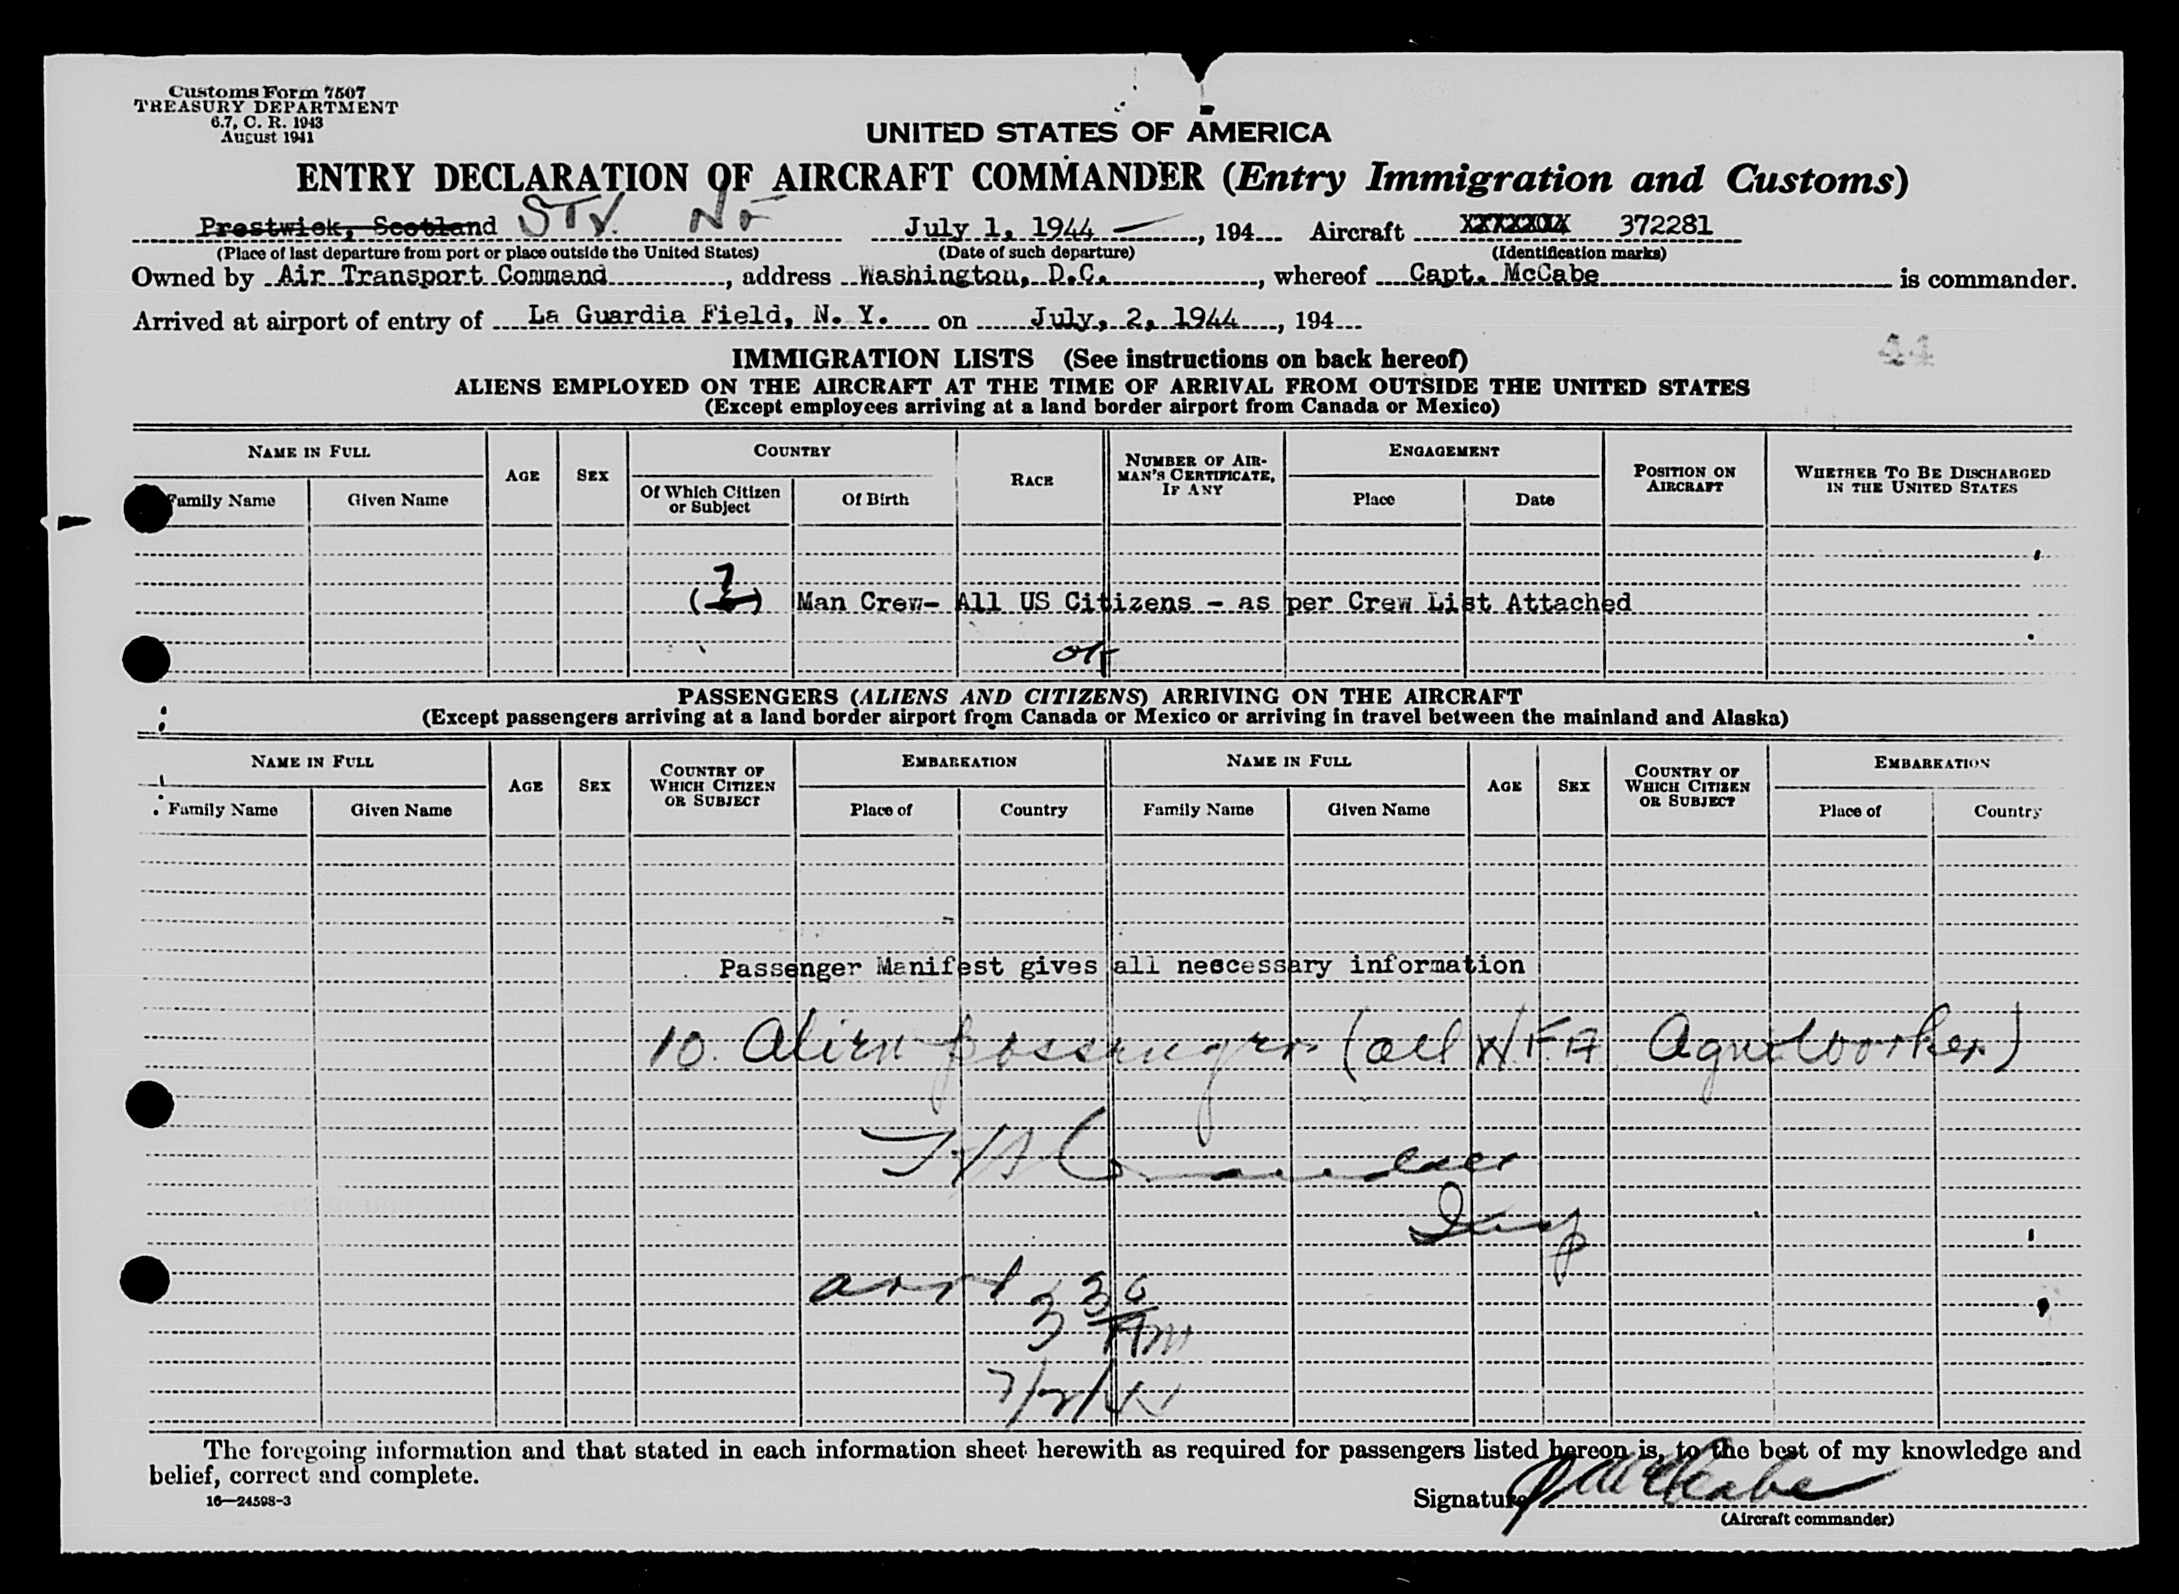 Customs Form 7507
TREASURY DEPARTMENT
6.7, C. R. 1943
August 1941
UNITED STATES OF AMERICA
ENTRY DECLARATION OF AIRCRAFT COMMANDER (Entry Immigration and Customs)
Prestwick, Scotland July 1, 1944, 194 Aircraft XXXXXXXX 372281
(Place of last departure from port or place outside the United States) (Date of such departure) (Identification marks)
Owned by Air Transport Command, address Washington, D.C., whereof Capt. McCabe is commander.
Arrived at airport of entry of La Guardia Field, N. Y. on July, 2, 1944, 194
44
IMMIGRATION LISTS (See instructions on back hereof)
ALIENS EMPLOYED ON THE AIRCRAFT AT THE TIME OF ARRIVAL FROM OUTSIDE THE UNITED STATES
(Except employees arriving at a land border airport from Canada or Mexico)
NAME IN FULL AGE SEX COUNTRY RACE NUMBER OF AIRMAN'S CERTIFICATE, IF ANY ENGAGEMENT POSITION ON AIRCRAFT WHETHER TO BE DISCHARGED IN THE UNITED STATES
Family Name Given Name Of Which Citizen or Subject Of Birth Place Date
7
( ) Man Crew- All US Citizens - as per Crew List Attached
OK
PASSENGERS (ALIENS AND CITIZENS) ARRIVING ON THE AIRCRAFT
(Except passengers arriving at a land border airport from Canada or Mexico or arriving in travel between the mainland and Alaska)
NAME IN FULL AGE SEX COUNTRY OF WHICH CITIZEN OR SUBJECT EMBARKATION NAME IN FULL AGE SEX COUNTRY OF WHICH CITIZEN OR SUBJECT EMBARKATION
Family Name Given Name Place of Country Family Name Given Name Place of Country
Passenger Manifest gives all neocessary information
10 Alien passengers (all WFA Agri Workers)
Insp
arrd 3 30 AM
7/2/44
The foregoing information and that stated in each information sheet herewith as required for passengers listed hereon is, to the best of my knowledge and
belief, correct and complete.
16—24598-3
Signature McCabe
(Aircraft commander)